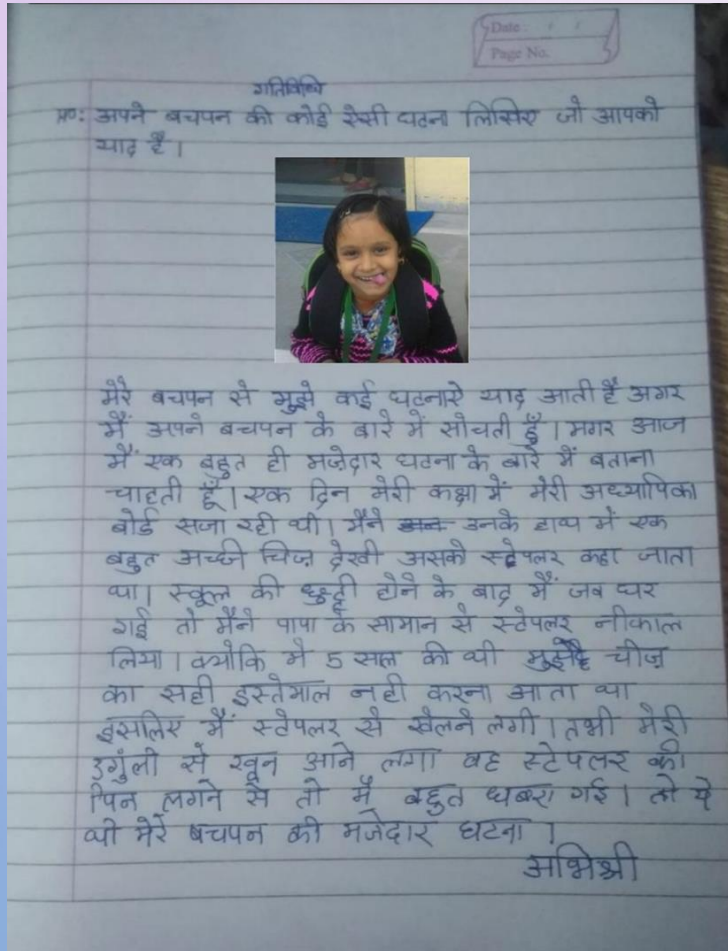 Date: / /
Page No.
गतिविधि
प्र०: अपने बचपन की कोई ऐसी घटना लिखिए जो आपको
याद है।
मेरे बचपन से मुझे कई घटनाएं याद आती है अगर
मैं अपने बचपन के बारे में सोचती हूँ। मगर आज
मैं एक बहुत ही मजेदार घटना के बारे में बताना
चाहती हूँ। एक दिन मेरी कक्षा में मेरी अध्यापिका
बोर्ड सजा रही थी। मैंने उनके हाथ में एक
बहुत अच्छी चिज़ देखी असको स्टेपलर कहा जाता
था। स्कूल की छुट्टी होने के बाद मैं जब घर
गई तो मैंने पापा के सामान से स्टेपलर नीकाल
लिया। क्योकि मे 5 साल की थी चीज़
का सही इस्तेमाल नही करना आता था
इसलिए मैं स्टेपलर से खेलने लगी। तभी मेरी
उगुंली से खून आने लगा वह स्टेपलर की
पिन लगने से तो मैं बहुत घबरा गई। तो ये
थी मेरे बचपन की मजेदार घटना।
अभिश्री